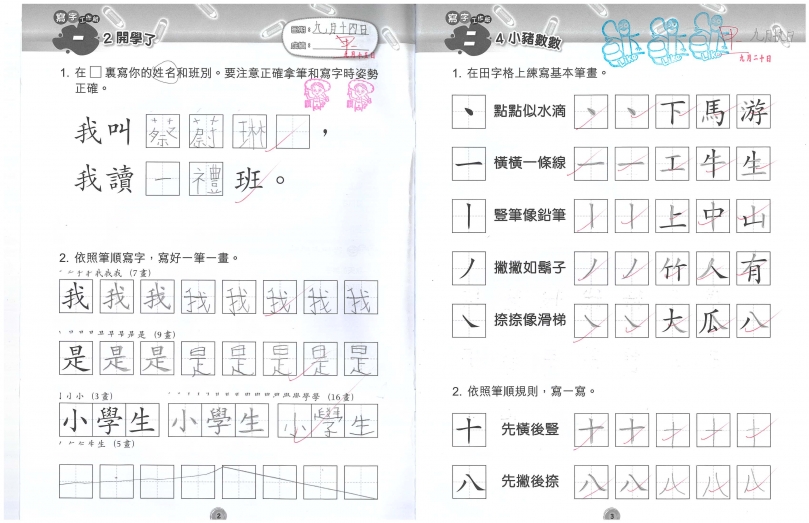 寫字工作紙
一 2 開學了
日期：九月十四日
成績：甲
九月十五日
1. 在□裏寫你的姓名和班別。要注意正確拿筆和寫字時姿勢
正確。
我叫蔡蔚琳，
我讀一禮班。
2. 依照筆順寫字，寫好一筆一畫。
(7畫)
我我我我我我我我
(9畫)
是是是是是是是是
小(3畫) 學(16畫)
小學生 小學生 小學生
生(5畫)
2
寫字工作紙
二 4 小豬數數
甲
九月二十日
1. 在田字格上練寫基本筆畫。
丶 點點似水滴 丶丶下馬游
一 橫橫一條線 一一工牛生
丨 豎筆像鉛筆 丨丨上中山
丿 撇撇如鬍子 丿丿竹人有
㇏ 捺捺像滑梯 ㇏㇏大瓜八
2. 依照筆順規則，寫一寫。
十 先橫後豎 十十十十十
八 先撇後捺 八八八八八
3